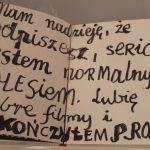 mam nadzieję, że
odpiszesz, serio
jestem normalnym
OLESiEM. lubię
dobre filmy i
SKOŃCZYŁEM PRA